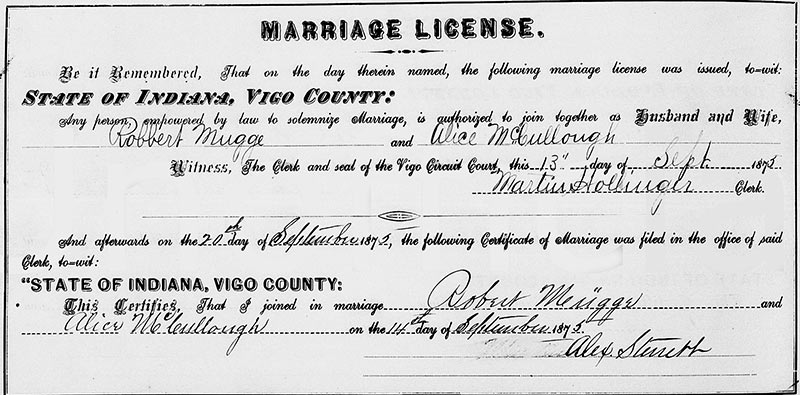 MARRIAGE LICENSE.
Be it Remembered, That on the day therein named, the following marriage license was issued, to=wit:
STATE OF INDIANA, VIGO COUNTY:
Any person, empowered by law to solemnize Marriage, is authorized to join together as Husband and Wife,
Robbert Mugge and Alice McCullough
Witness, The Clerk and seal of the Vigo Circuit Court, this 13" day of Sept 1875
Martin Hollinger Clerk.
And afterwards on the 20th day of September 1875, the following Certificate of Marriage was filed in the office of said
Clerk, to=wit:
"STATE OF INDIANA, VIGO COUNTY:
This Certifies, That I joined in marriage Robert Mügge and
Alice McCullough on the 14th day of September 1875.
Alex Sterrett